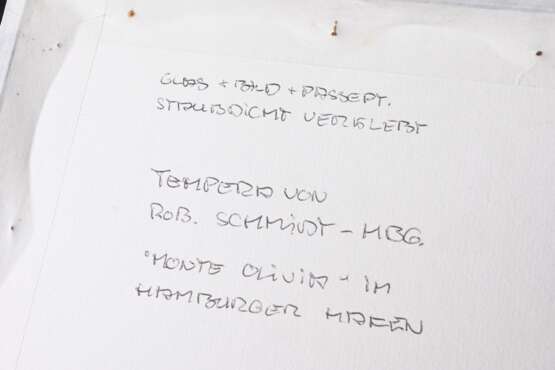 GLAS + BILD + PASSEPT.
STAUBDICHT VERKLEBT
TEMPERA VON
ROB. SCHMIDT - HBG.
"MONTE OLIVIA" IM
HAMBURGER HAFEN